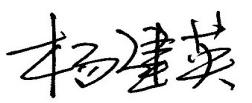 杨建英